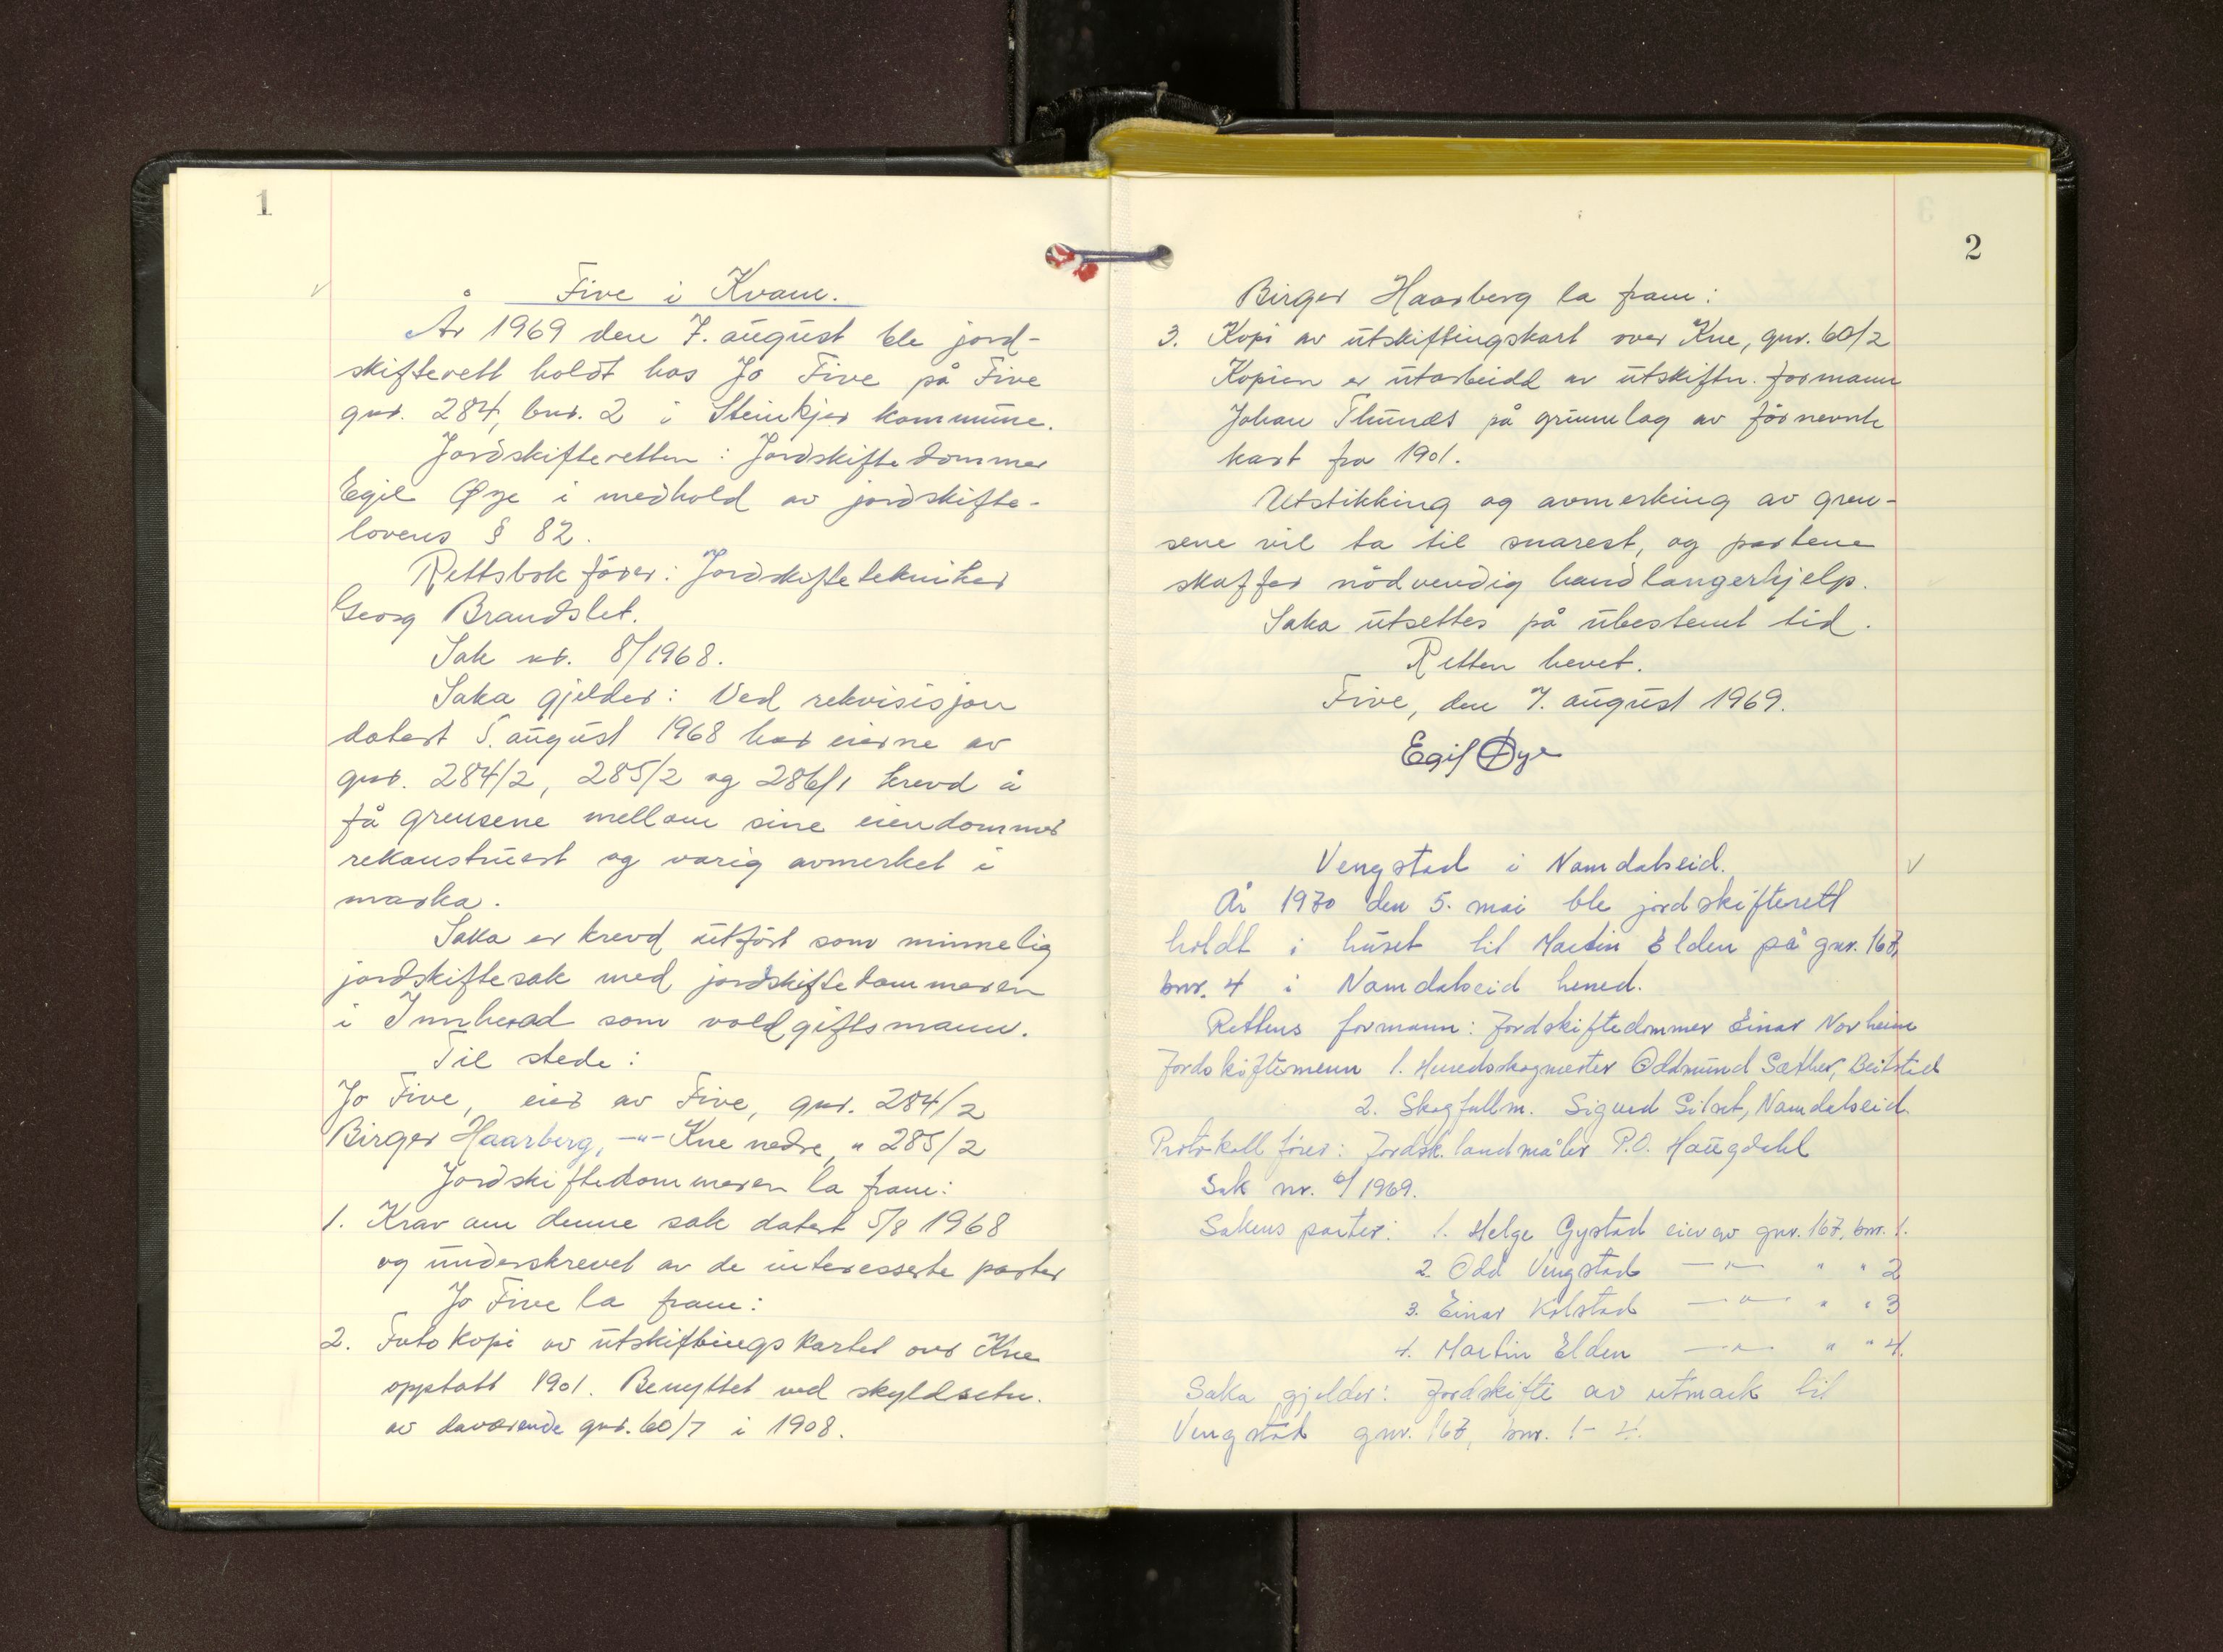 1
Five i Kvam.
År 1969 den 7. august ble jord-
skifterett holdt hos Jo Five på Five
gnr. 284, bnr. 2 i Steinkjer kommune.
Jordskifteretten: Jordskiftedommer
Egil Øye i medhold av jordskifte-
lovens § 82.
Rettsbokfører: Jordskiftetekniker
Georg Brandslet.
Sak nr. 8/1968.
Saka gjelder: Ved rekvisisjon
datert 5. august 1968 har eierne av
gnr. 284/2, 285/2 og 286/1 krevd å
få grensene mellom sine eiendommer
rekonstruert og varig avmerket i
marka.
Saka er krevd utført som minnelig
jordskiftesak med jordskiftedommeren
i Innherad som voldgiftsmann.
Til stede:
Jo Five, eier av Five, gnr. 284/2
Birger Haarberg, -"- Kne nedre, " 285/2
Jordskiftedommeren la fram:
1. Krav om denne sak datert 5/8 1968
og underskrevet av de interesserte parter
Jo Five la fram:
2. Fotokopi av utskiftingskartet over Kne
oppstatt 1901. Benyttet ved skyldsetn.
av daværende gnr. 60/7 i 1908.
2
Birger Haarberg la fram:
3. Kopi av utskiftingskart over Kne, gnr. 60/2
Kopien er utarbeidd av utskiftn. formann
Johan Thunes på grunnlag av førnevnte
kart fra 1901.
Utstikking og avmerking av gren-
sene vil ta til snarest, og partene
skaffer nødvendig handlangerhjelp.
Saka utsettes på ubestemt tid.
Retten hevet.
Five, den 7. august 1969.
Egil Øye
Vengstad i Namdalseid.
År 1970 den 5. mai ble jordskifterett
holdt i huset til Martin Elden på gnr. 167,
bnr. 4 i Namdalseid herred.
Rettens formann: Jordskiftedommer Einar Norheim
Jordskiftemenn 1. Herredskogmester Oddmund Sæther, Beitstad
2. Skogfullm. Sigurd Silset, Namdalseid.
Protokollfører: Jordsk.landmåler P.O. Haugdahl
Sak nr. 6/1969.
Sakens parter: 1. Helge Gystad eier av gnr. 167, bnr. 1.
2. Odd Vengstad —"— " " 2
3. Einar Kolstad —"— " " 3
4. Martin Elden —"— " " 4.
Saka gjelder: Jordskifte av utmark til
Vengstad gnr. 167, bnr. 1-4.